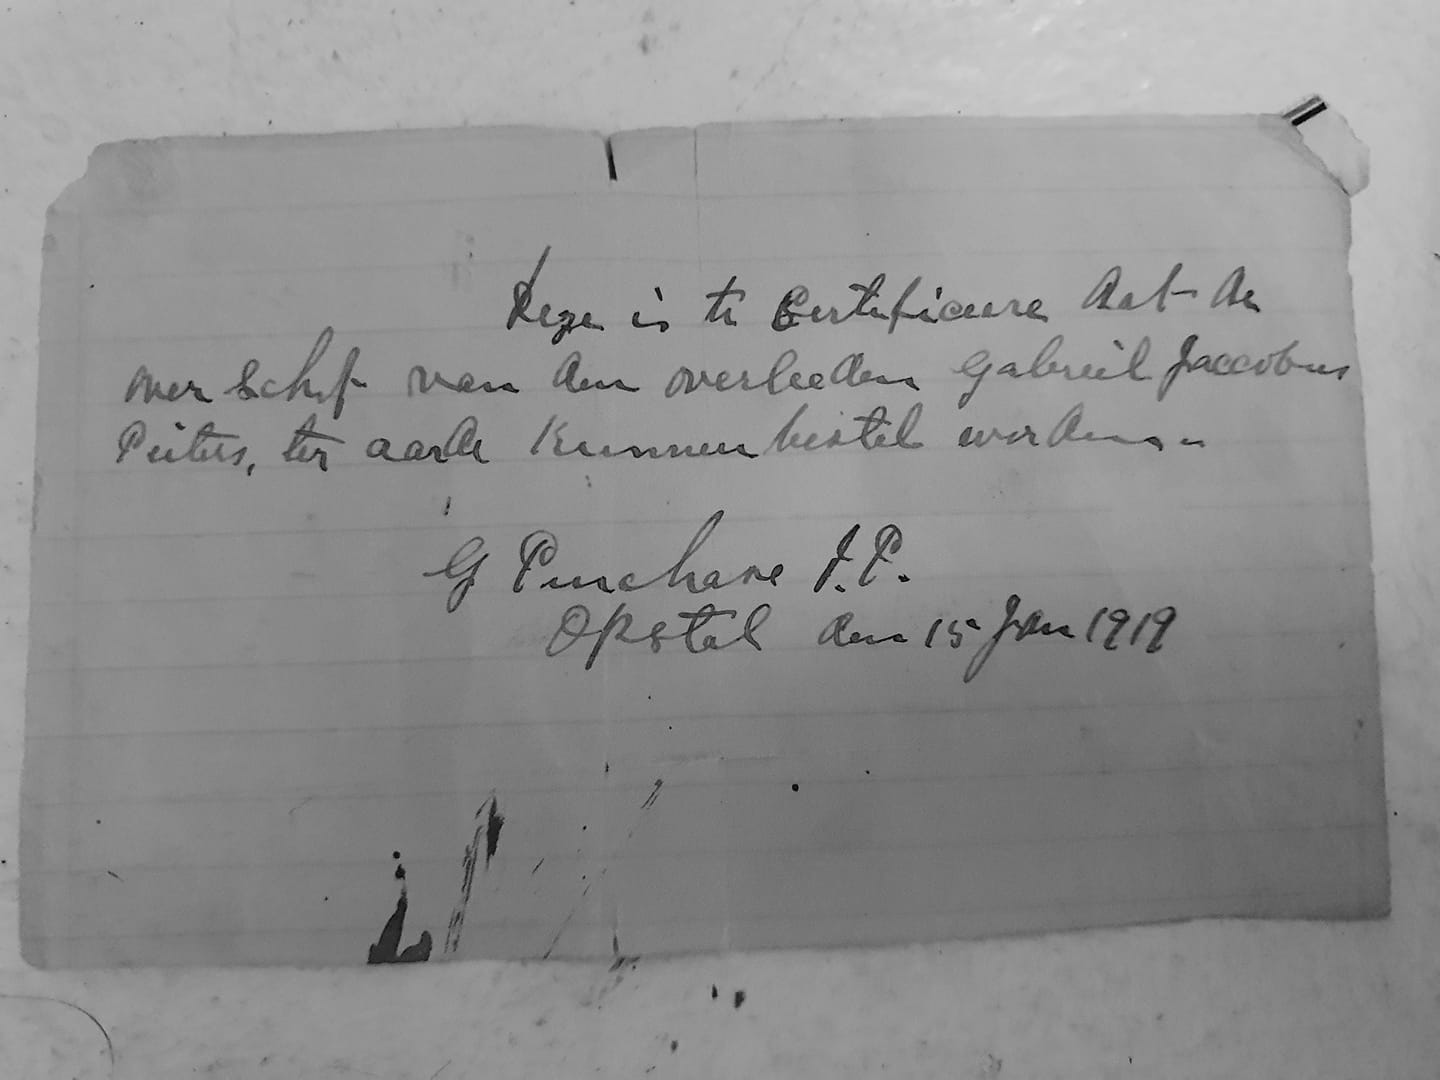 Deze is te Certificeere dat de
overschif van den overleeden Gabriel Jaccobus
Pieters, ter aarde Kunnen bestel worden.
G Purchase J.P.
Opstal den 15 Jan 1919